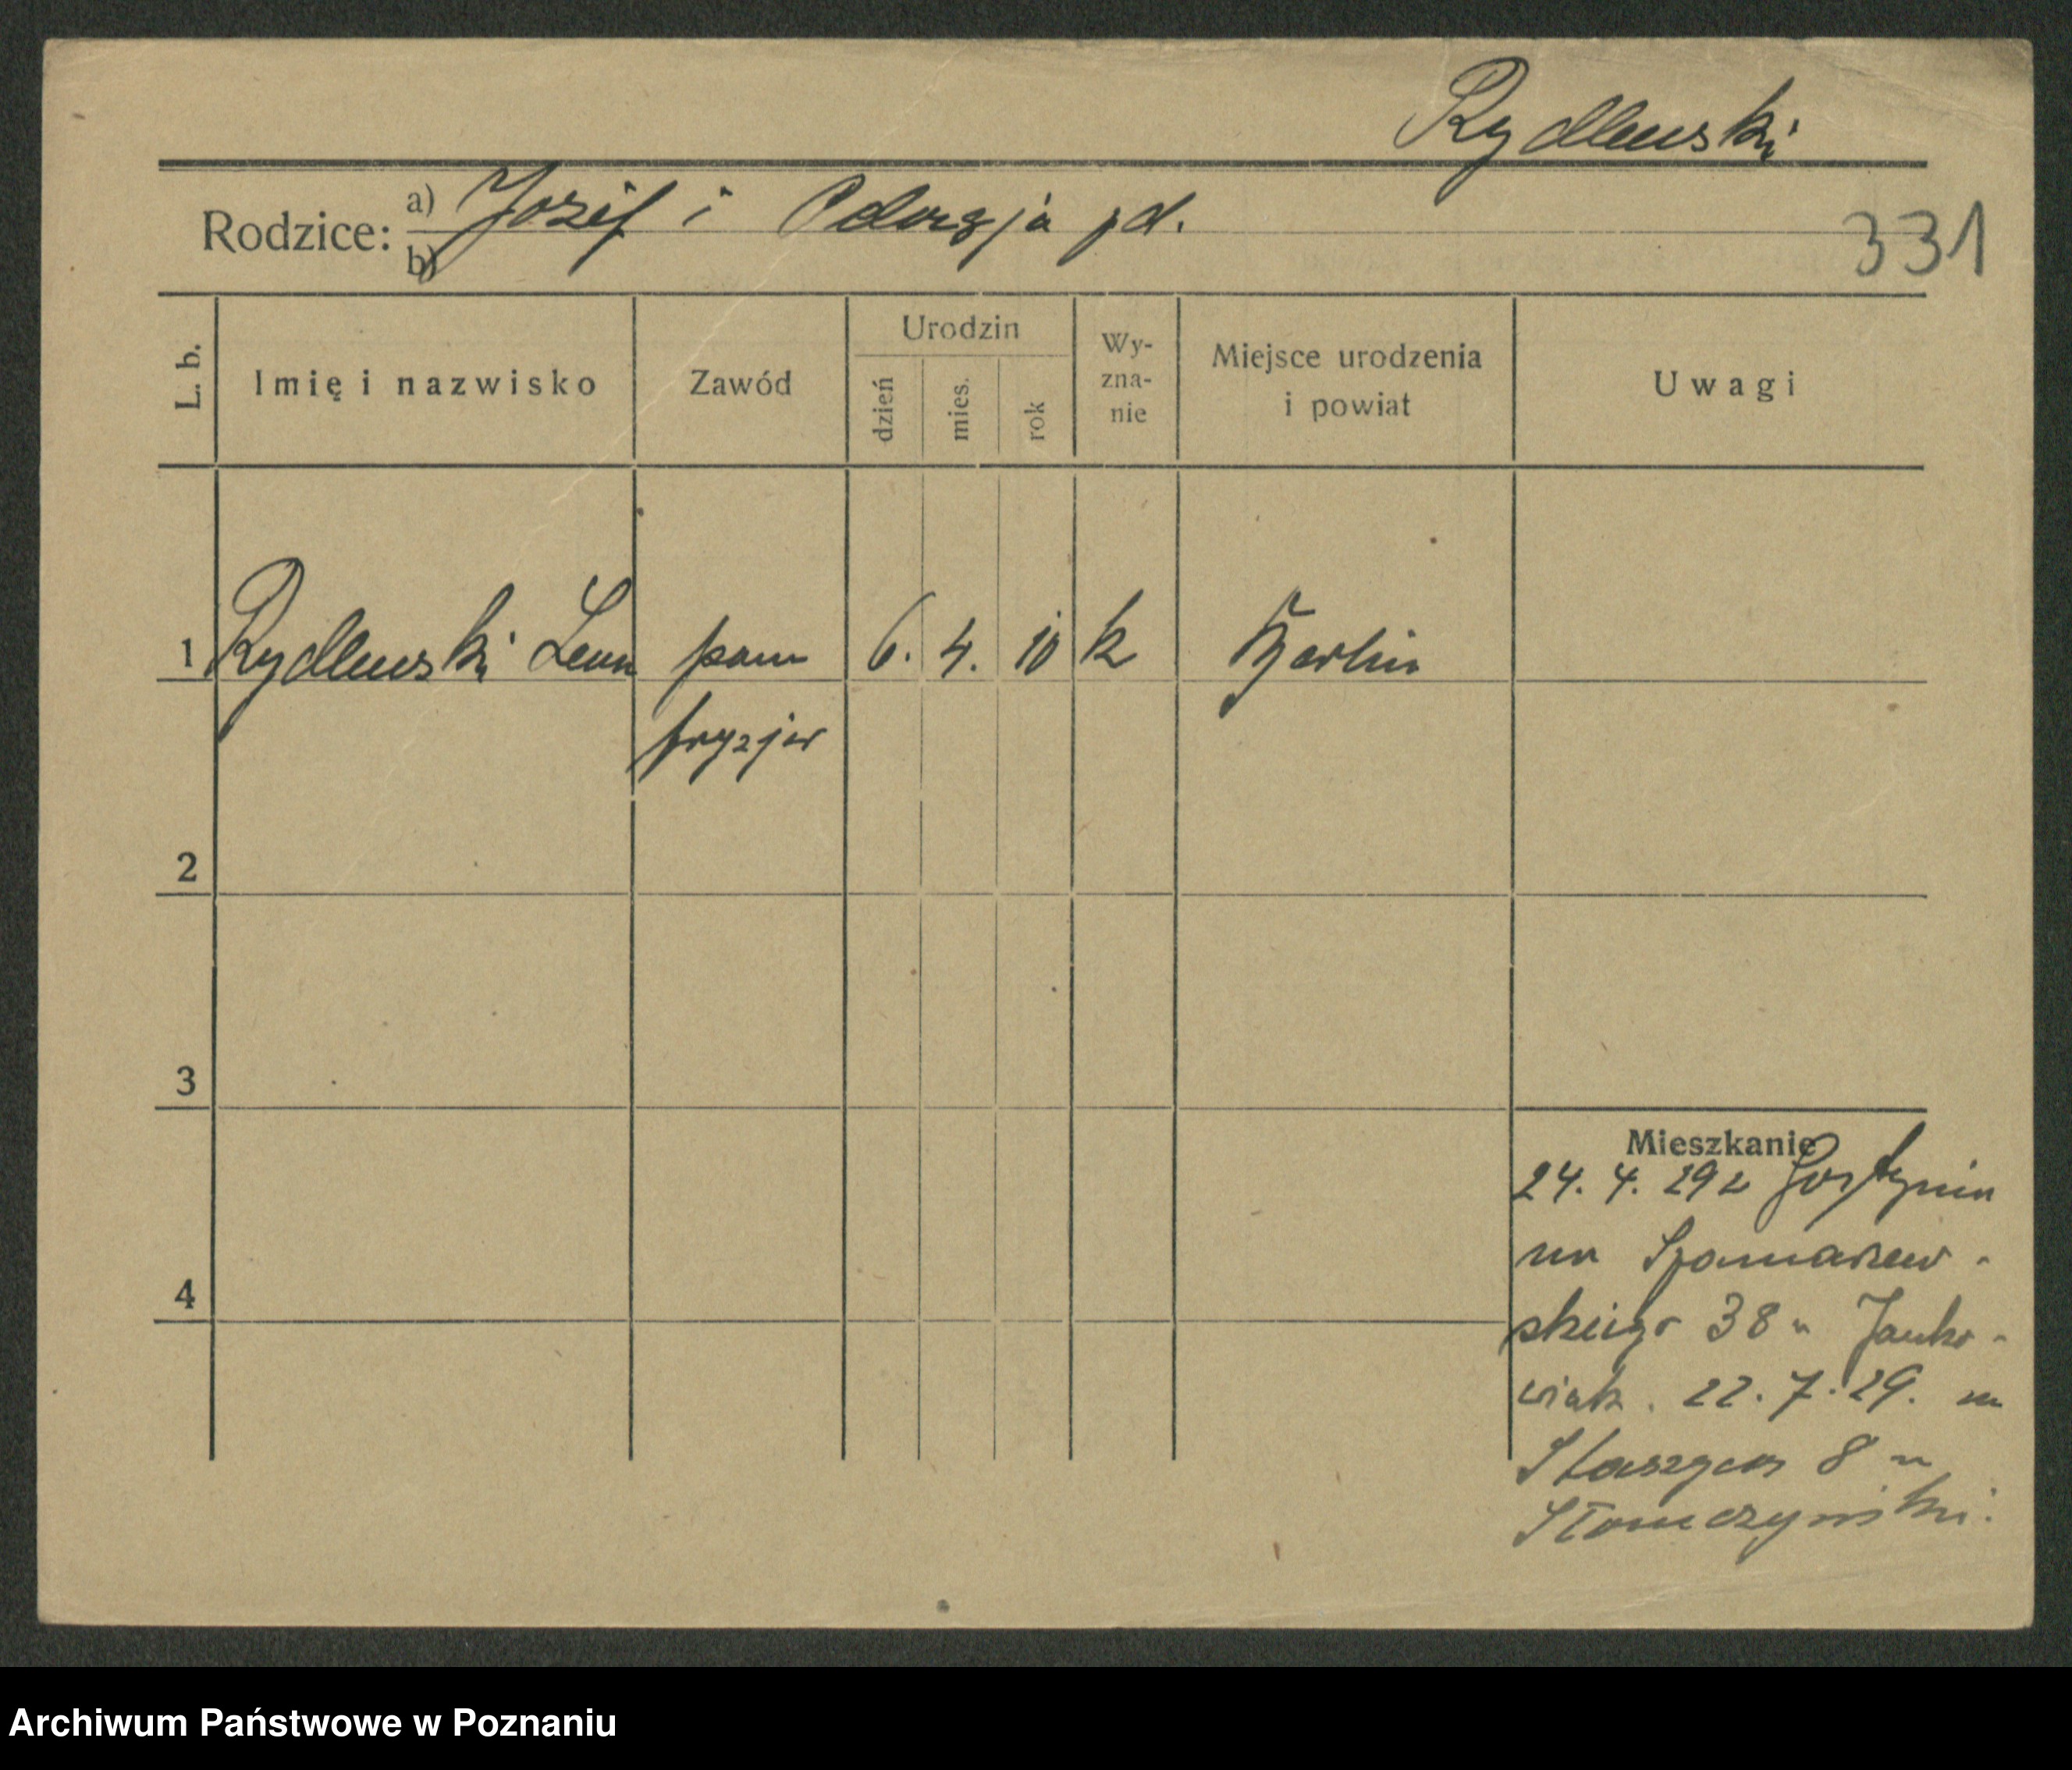 Rydlewski
Rodzice: a) Józef i Pelagja zd.
b)
331
L. b.
Imię i nazwisko
Zawód
Urodzin
dzień
mies.
rok
Wy-
zna-
nie
Miejsce urodzenia
i powiat
Uwagi
1 Rydlewski Leon pom 6. 4. 10 k Berlin
fryzjer
2
3
4
Mieszkanie
24. 4. 29 z Gostynin
na Szamarzew-
skiego 38 u Janko-
wiak. 22. 7. 29. na
Staszyca 8 u
Słomczyński.
Archiwum Państwowe w Poznaniu